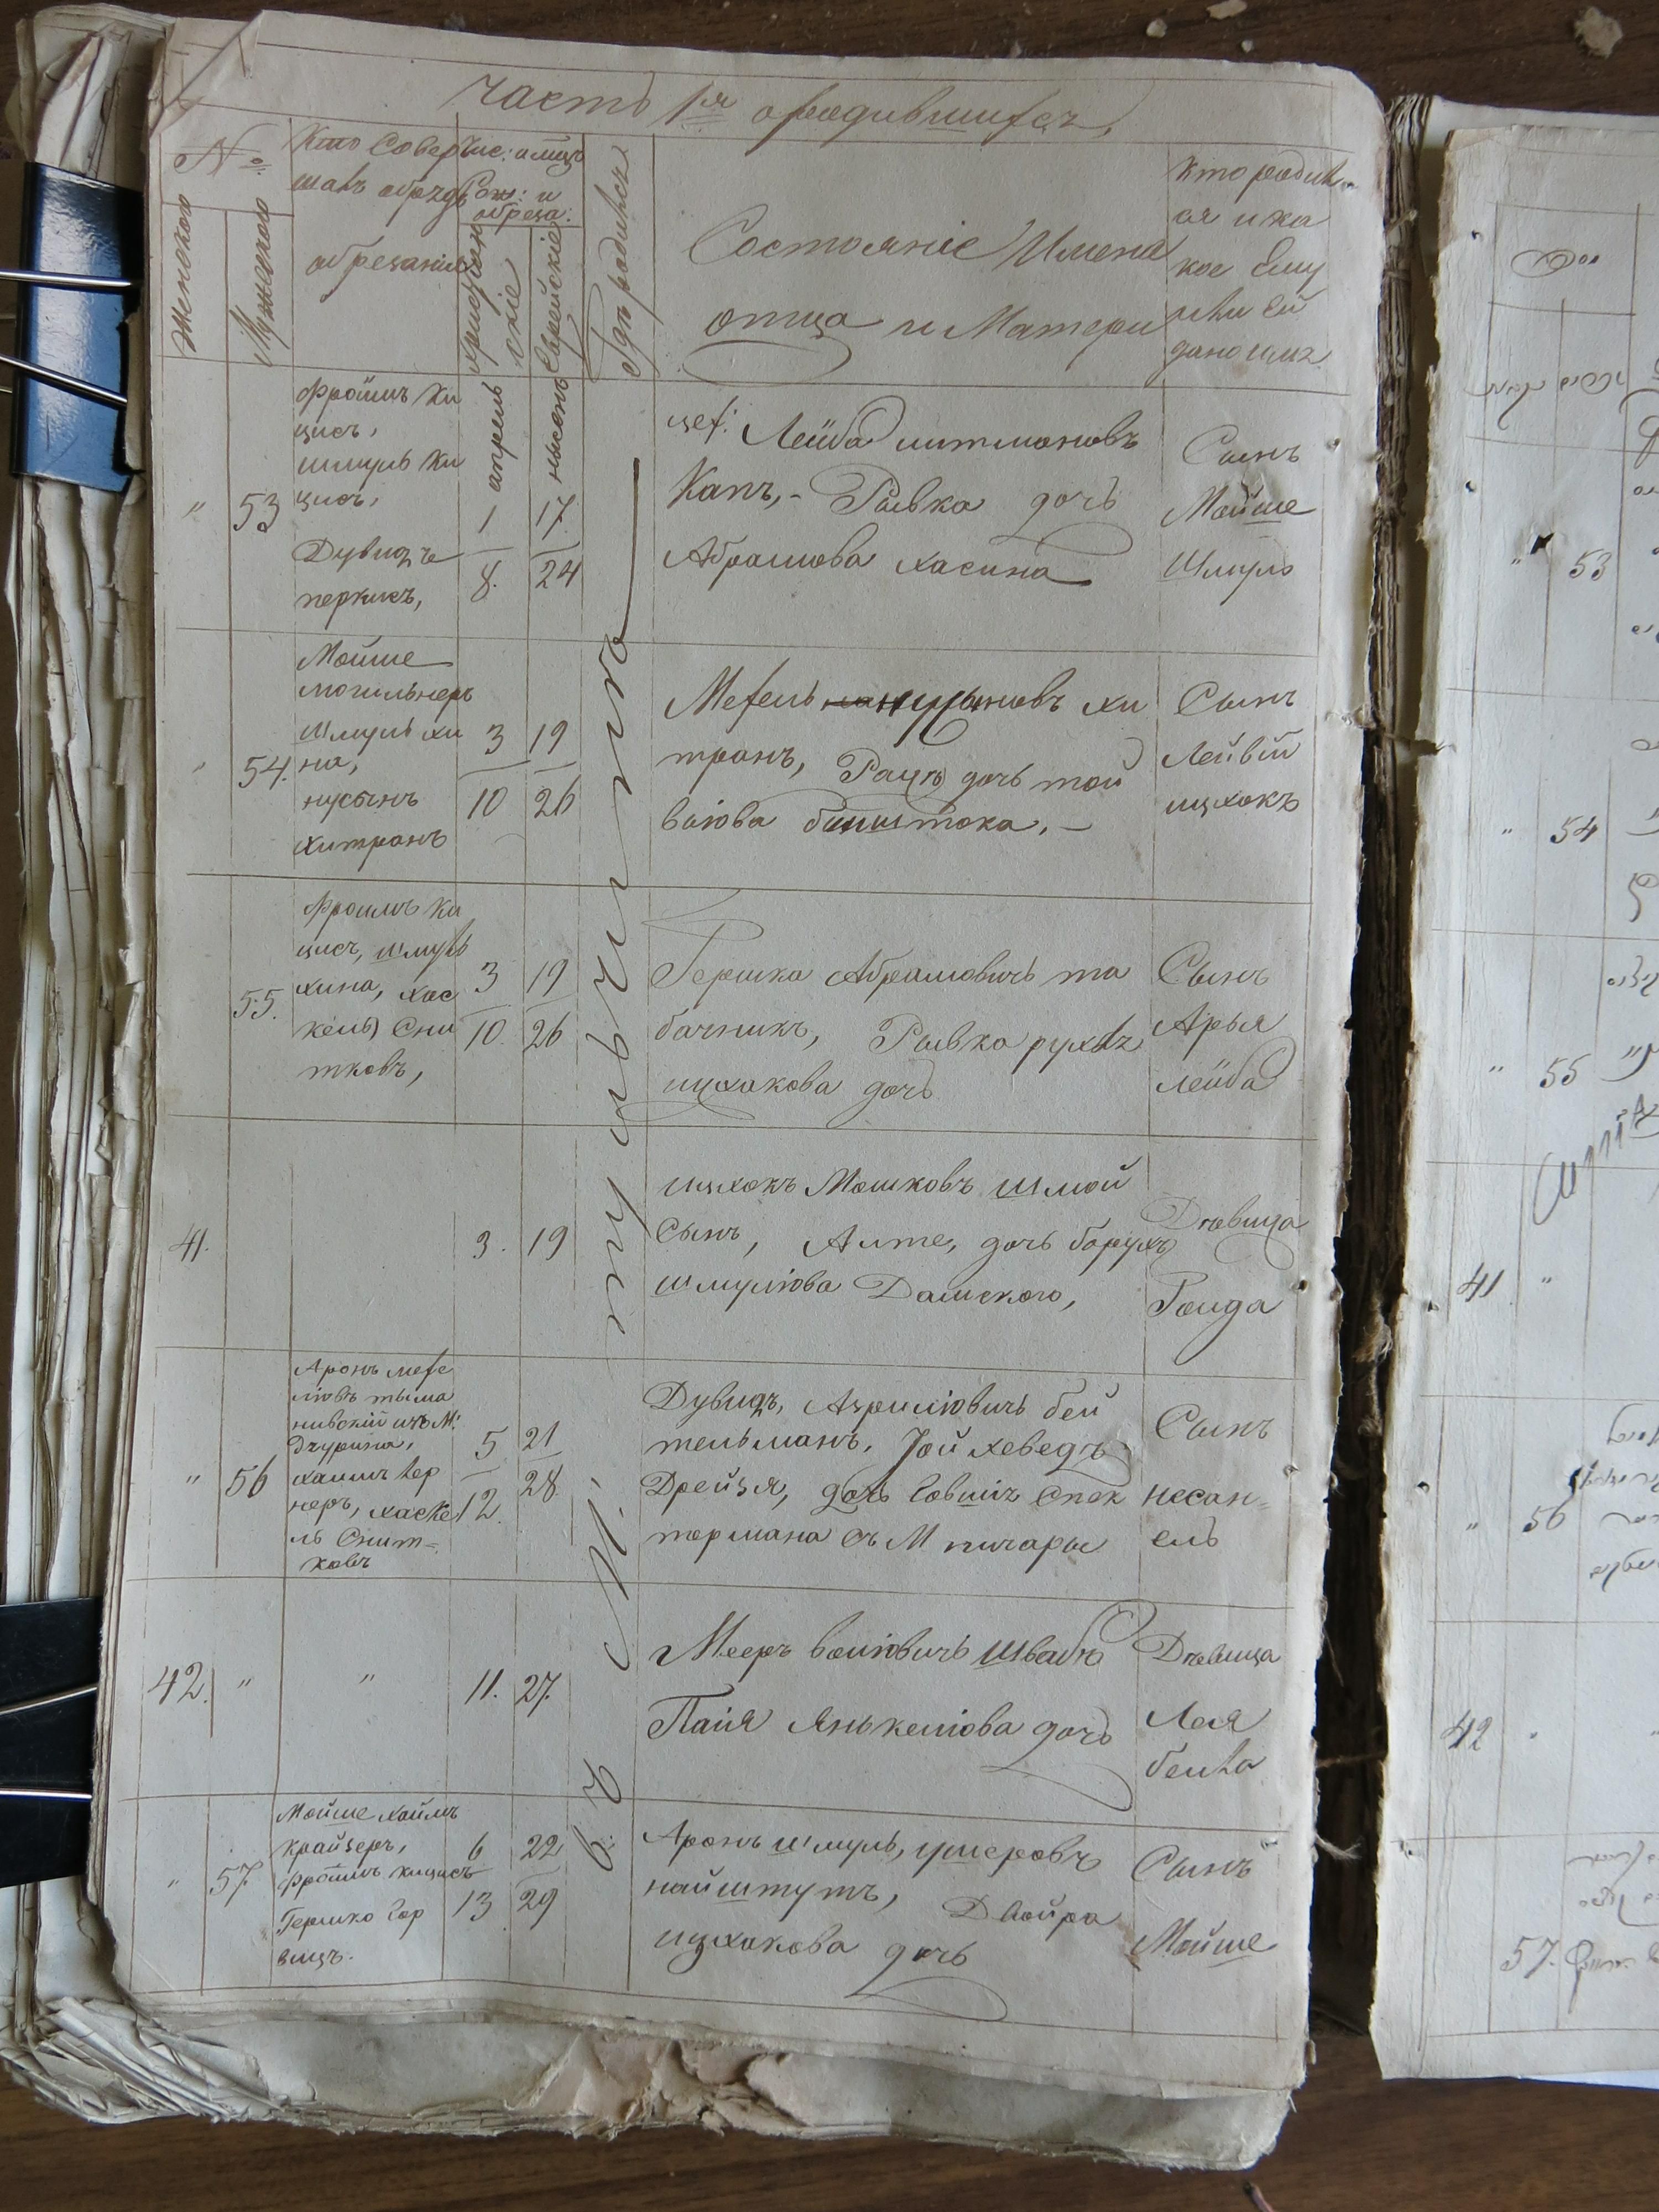 часть 1я о родившихся,
№
Женского
Мужеского
Кто Совер
шавъ обрядъ
обрезания
чис: и мцъ
Рож: и
обреза:
христиан
скіе
Еврейскіе
Где родился
Состояніе Имена
отца и Матери
Кто родил
ся и ка
кое Ему
или Ей
дано имя
апрель
нысонъ
въ М. тульчинъ
" 53
Фроимъ Ки
цисъ,
шмуль Ки
цисъ,
Дувидъ
перкисъ,
1 17.
8. 24
цех: Лейба
Капъ, - Рывка дочь
Абрамова хасина
Сынъ
Мойше
Шмуль
" 54.
Мойше
могильнеръ
Шмуль хи
на,
нусынъ
хитранъ
3 19
10 26
Мехель нусыновъ хи
транъ, дочь той
віова
Сынъ
Лейвій
ицхокъ
55.
Фроимъ Ки
цисъ, шмуль
хина, хас
кель Сни
тковъ,
3 19
10. 26
Гершко Абрамовичъ та
бачникъ, Рывка рухля
ицхокова дочь
Сынъ
Арья
лейба
41.
3. 19
ицхокъ Мошковъ шмой
Сынъ, Алте, дочь борухъ
шмуліова Дашского,
Девица
Гоида
" 56
Аронъ мехе
ліовъ тыма
нивскій изъ М:
Джурина,
хаимъ лер
неръ, хаске
ль Снит=
ковъ
5 21
12. 28.
Дувидъ, Азриліовичъ бей
тельманъ, Іойхеведъ
Дрейзя, дочь Спек
тормана съ М печары
Сынъ
несан=
елъ
42. " "
11. 27.
Мееръ воліовичъ Швабъ
Паія Янкеліова дочь
Девица
Лея
бейла
" 57.
Мойше хаимъ
крайзеръ,
Фроимъ кицисъ
Гершко Гор
вицъ.
6 22
13 29
Аронъ шмуль, ушеровъ
найштутъ, Двойра
ицхокова дочь
Сынъ
Мойше
" 53
" 54
" 55
41 "
" 56
42
57.